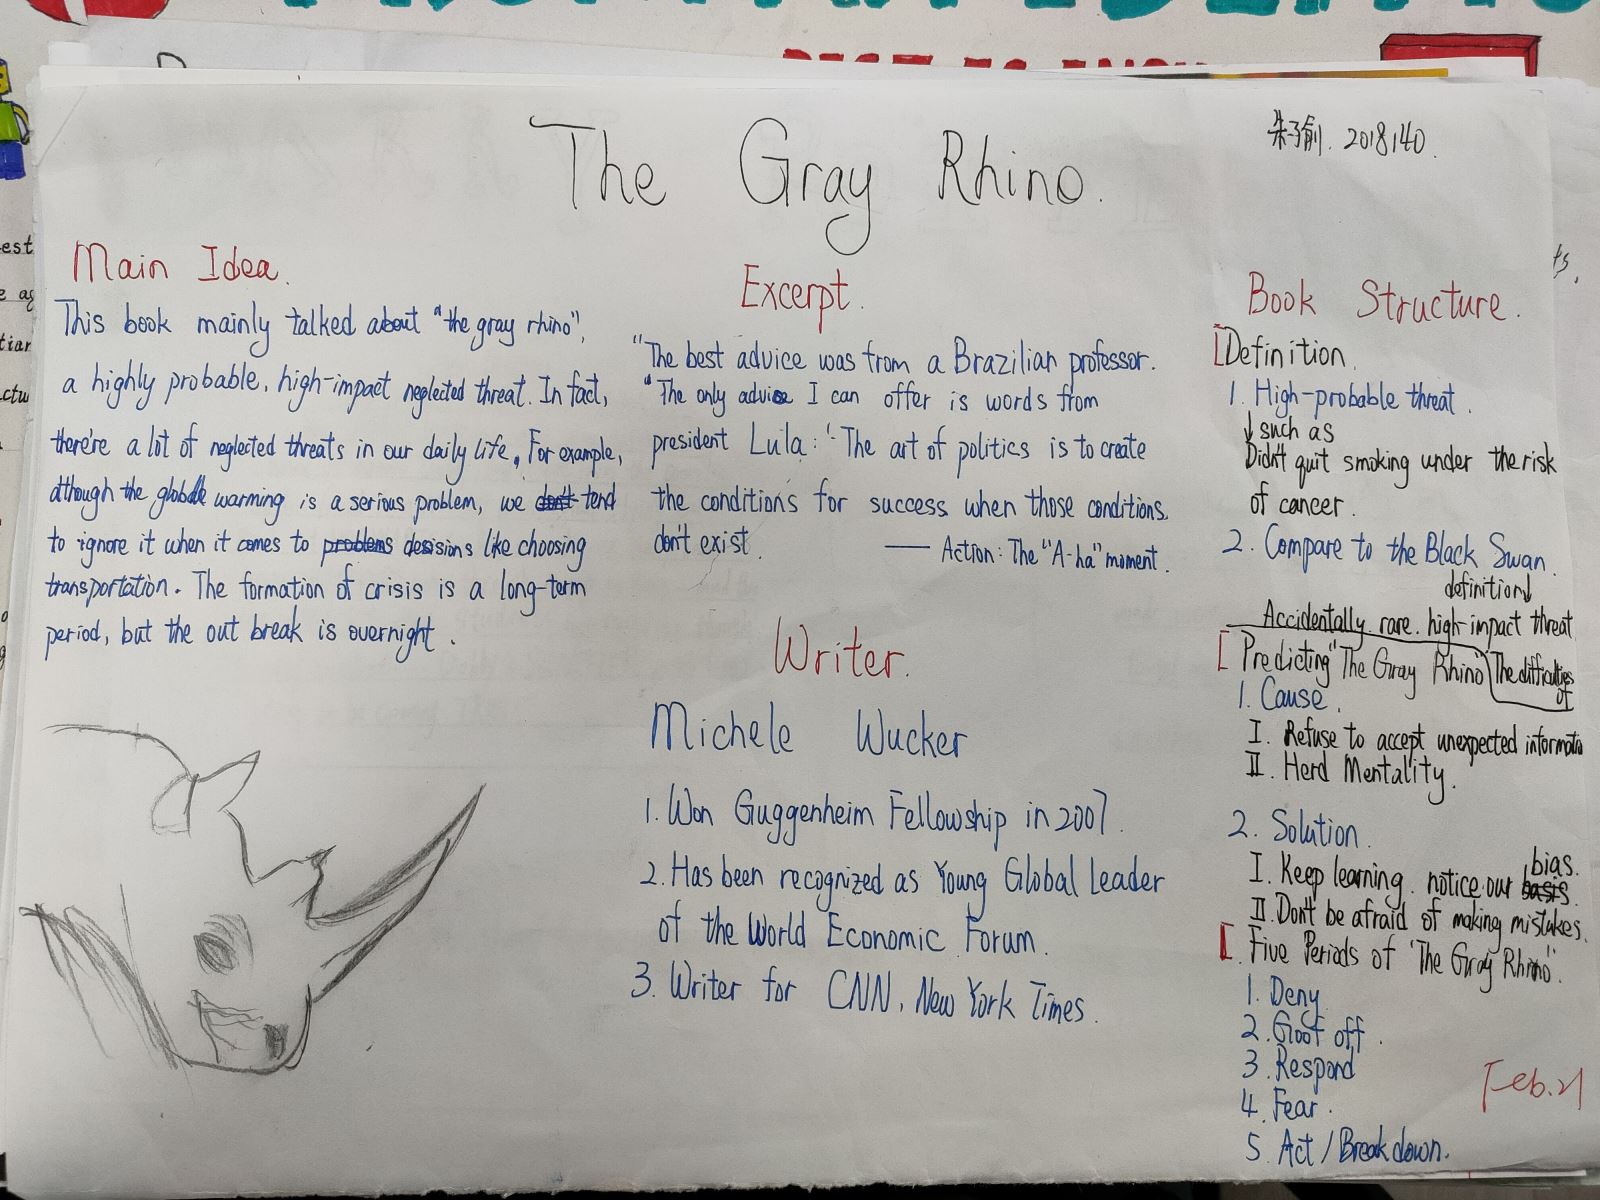 The Gray Rhino.
朱子俞. 2018140.
Main Idea.
This book mainly talked about "the gray rhino",
a highly probable, high-impact neglected threat. In fact,
there're a lot of neglected threats in our daily life. For example,
although the globale warming is a serious problem, we don't tend
to ignore it when it comes to problems desisions like choosing
transportation. The formation of crisis is a long-term
period, but the out break is overnight.
Excerpt.
"The best advice was from a Brazilian professor.
"The only advice I can offer is words from
president Lula: '"The art of politics is to create
the conditions for success when those conditions.
don't exist.
—— Action: The "A-ha" moment.
Writer.
Michele Wucker
1. Won Guggenheim Fellowship in 2007.
2. Has been recognized as Young Global Leader
of the World Economic Forum.
3. Writer for CNN, New York Times.
Book Structure.
[Definition.
1. High-probable threat.
↓ such as
Didn't quit smoking under the risk
of cancer.
2. Compare to the Black Swan.
definition↓
Accidentally. rare. high-impact threat
[Predicting "The Gray Rhino" The difficulties
of
1. Cause.
I. Refuse to accept unexpected informatio
II. Herd Mentality.
2. Solution.
bias.
I. Keep learning. notice our basis.
II. Don't be afraid of making mistakes.
[Five Periods of "The Gray Rhino".
1. Deny
2. Goof off.
3. Respond
4. Fear.
5. Act / Breakdown.
Feb.21